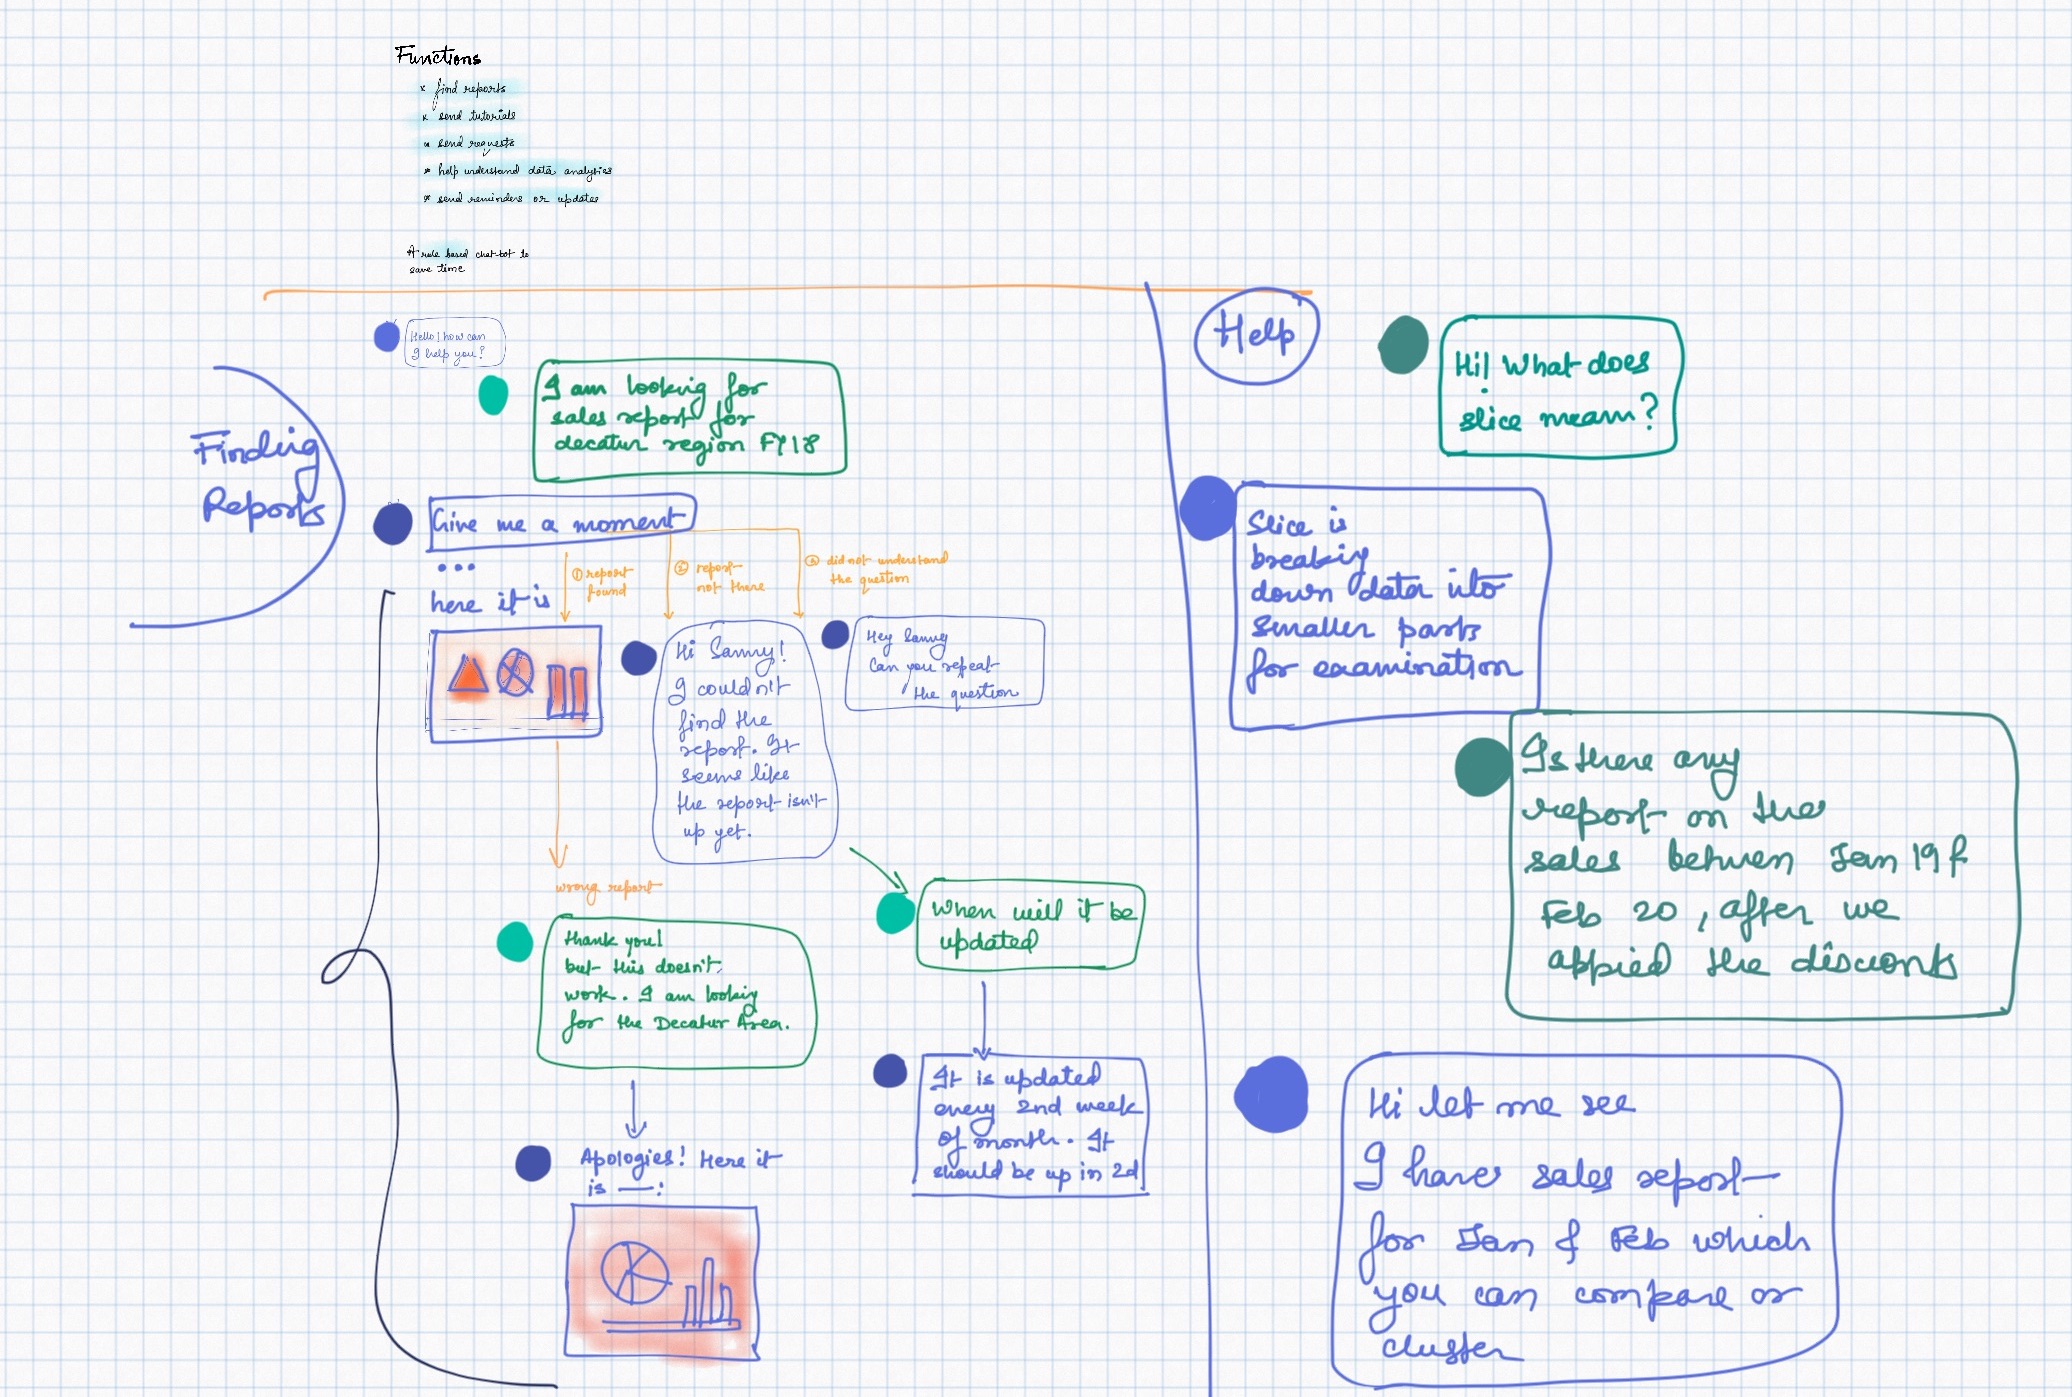 Functions
x find reports
x send tutorials
x send requests
* help understand data analytics
* send reminders or updates
A rule based chat-bot to
save time
Finding
Reports
Hello! how can
I help you?
I am looking for
sales report for
decatur region FY18
Give me a moment
...
here it is
① report
found
② report
not there
③ did not understand
the question
Hi Sammy!
I couldn't
find the
report. It
seems like
the report isn't
up yet.
Hey Sammy
Can you repeat
the question
wrong report
thank you!
but this doesn't
work. I am looking
for the Decatur Area.
When will it be
updated
It is updated
every 2nd week
of month. It
should be up in 2d
Apologies! Here it
is —:
Help
Hi! What does
slice mean?
Slice is
breaking
down data into
smaller parts
for examination
Is there any
report on the
sales between Jan 19 &
Feb 20, after we
appied the disconts
Hi let me see
I have sales report
for Jan & Feb which
you can compare or
cluster